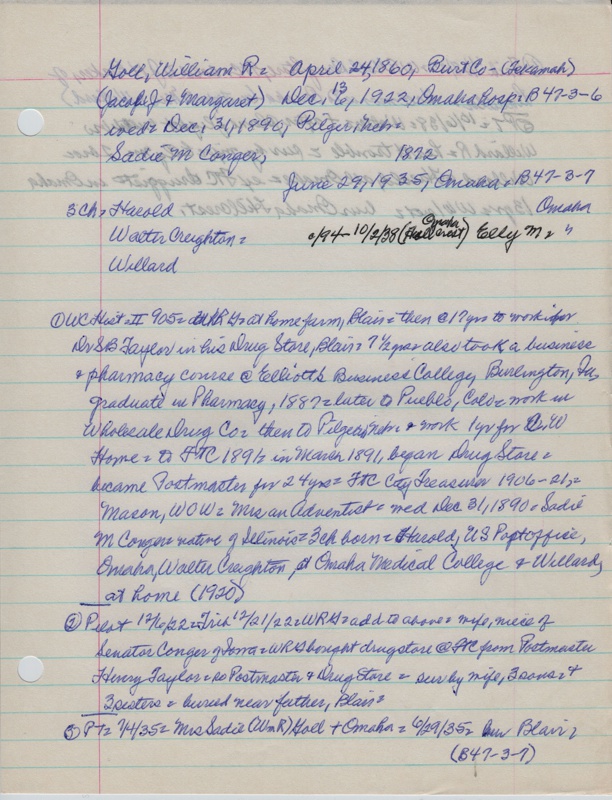 Goll, William R = April 24, 1860, Burt Co - (Tekamah)
(Jacob J & Margaret) Dec, 13 6, 1922, Omaha Hosp. B47-3-6
wed = Dec, 31, 1890, Pilger, Neb =
Sadie M Conger, 1872
June 29, 1935, Omaha = B47-3-7
3 ch = Harold Omaha
Walter Creighton = c/94 - 10/2/38 (Omaha Hillcrest) Elly M = "
Willard
① WC Hist = II 905 = WRG = at home farm, Blair = then @ 17 yrs to work for
Dr SB Taylor in his Drug Store, Blair = 7 1/2 yrs = also took a business
& pharmacy course @ Elliott's Business College, Burlington, Ia,
graduate in Pharmacy, 1887 = later to Pueblo, Colo = work in
Wholesale Drug Co = then to Pilger, Nebr & work 1 yr for W
Home = to FTC 1891 = in March 1891, began Drug Store =
became Postmaster for 24 yrs = FTC City Treasurer 1906-21, =
Mason, WOW = Mrs an Adventist = wed Dec 31, 1890 = Sadie
M Conger = native of Illinois = 3 ch born = Harold, US Postoffice,
Omaha, Walter Creighton, at Omaha Medical College & Willard,
at home (1920)
② Pilot 12/6/22 = Trib 12/21/22 = WRG = add to above = wife, niece of
Senator Conger of Iowa = WRG bought drugstore @ FTC from Postmaster
Henry Taylor = so Postmaster & Drug Store = sur by wife, 3 sons = &
3 sisters = buried near father, Blair =
③ PT = 7/4/35 = Mrs Sadie (Wm R) Goll + Omaha = 6/29/35 = bur Blair,
(B47-3-7)